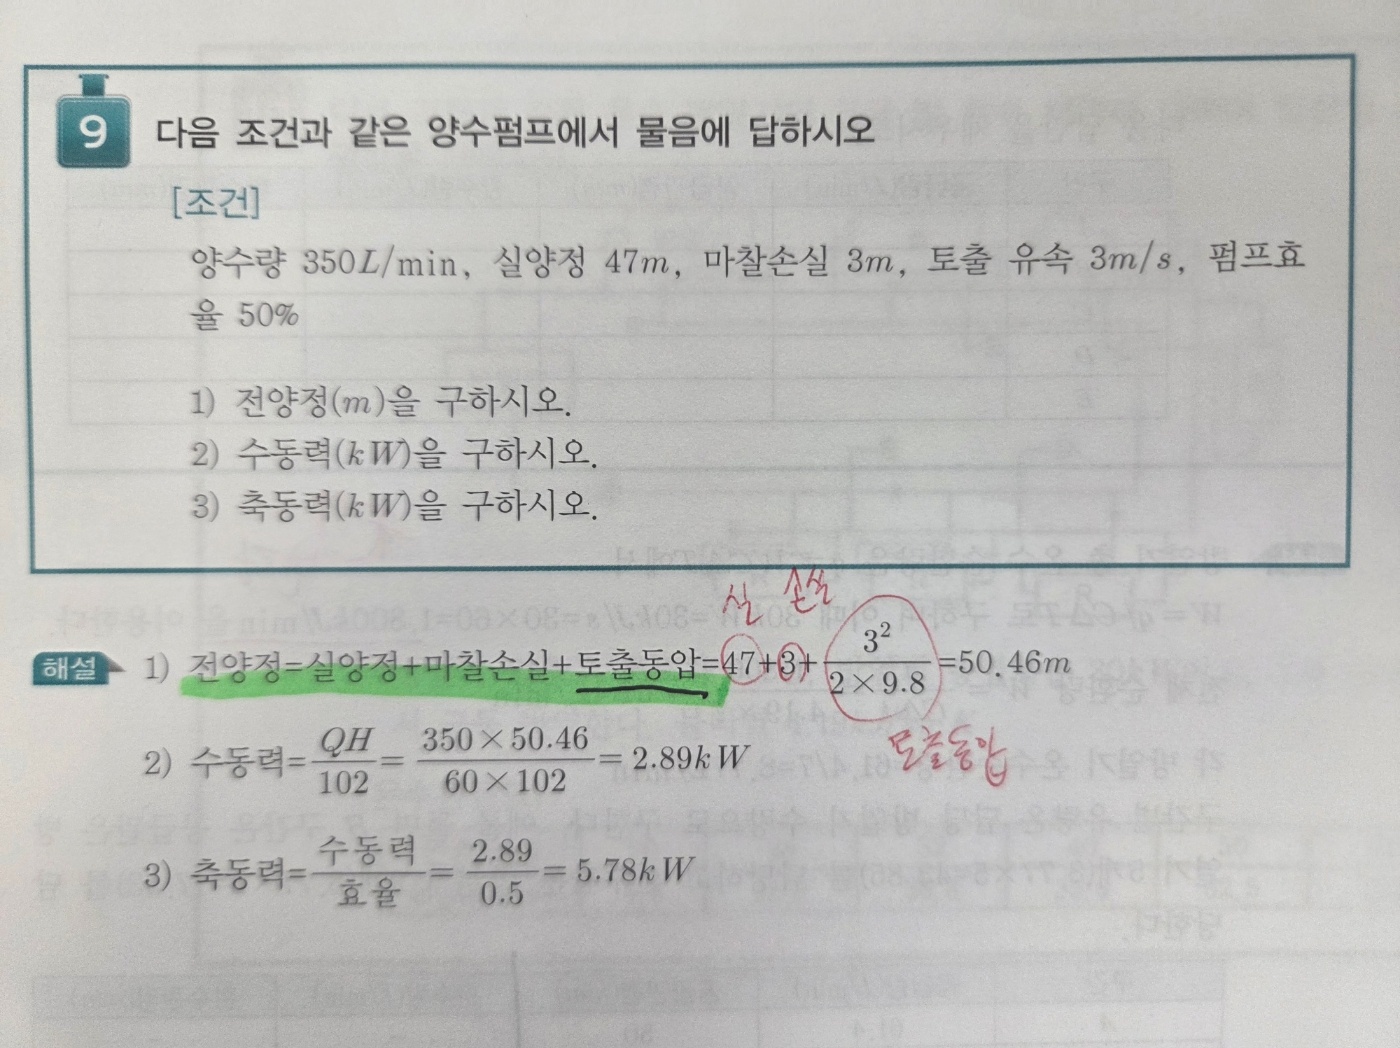 9 다음 조건과 같은 양수펌프에서 물음에 답하시오
[조건]
양수량 350L/min, 실양정 47m, 마찰손실 3m, 토출 유속 3m/s, 펌프효
율 50%
1) 전양정(m)을 구하시오.
2) 수동력(kW)을 구하시오.
3) 축동력(kW)을 구하시오.
실 손실
해설 1) 전양정=실양정+마찰손실+토출동압=47+3+ 3²/(2×9.8) =50.46m
토출동압
2) 수동력= QH/102 = (350×50.46)/(60×102) = 2.89kW
3) 축동력= 수동력/효율 = 2.89/0.5 = 5.78kW